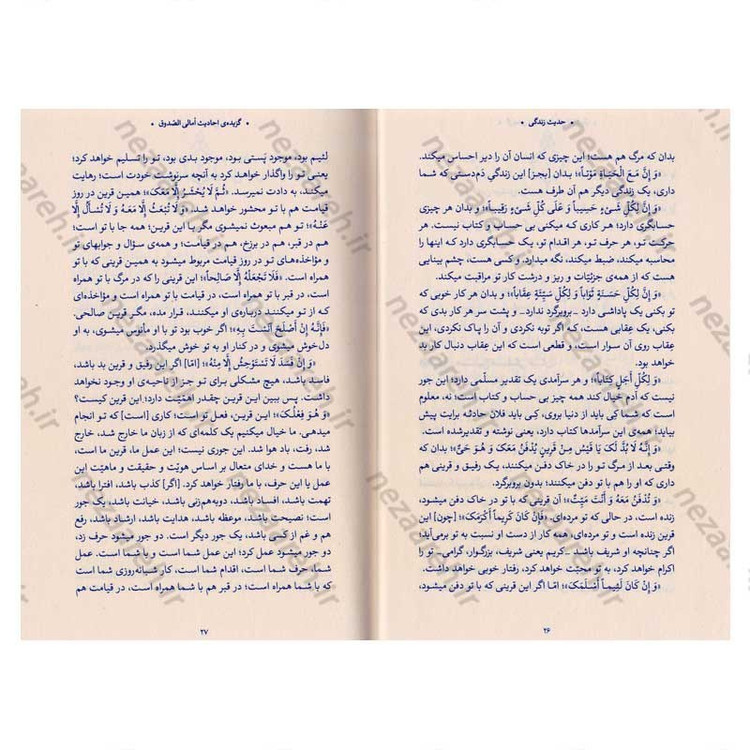 • حدیث زندگی •
بدان که مرگ هم هست؛ این چیزی که انسان آن را دیر احساس میکند.
«وَ إِنَّ مَعَ الْحَیاةِ مَوْتاً»؛ بدان [بجز] این زندگی دَم‌دستی که شما
داری، یک زندگی دیگر هم آن طرف هست.
«وَ إِنَّ لِکُلِّ شَیْءٍ حَسِیباً وَ عَلَی کُلِّ شَیْءٍ رَقِیباً»؛ و بدان هر چیزی
حسابگری دارد؛ هر کاری که میکنی بی حساب و کتاب نیست. هر
حرکت تو، هر حرف تو، هر اقدام تو، یک حسابگری دارد که اینها را
محاسبه میکند، ضبط میکند، نگه میدارد، و کسی هست، چشم بینایی
هست که از همه‌ی جزئیّات و ریز و درشت کار تو مراقبت میکند.
«وَ إِنَّ لِکُلِّ حَسَنَةٍ ثَوَاباً وَ لِکُلِّ سَیِّئَةٍ عِقَاباً»؛ و بدان هر کار خوبی که
تو بکنی یک پاداشی دارد ـ بروبرگرد ندارد ـ و پشت سر هر کار بد که
بکنی، یک عِقابی هست، که اگر توبه نکردی و آن را پاک نکردی، این
عِقاب روی آن سوار است، و قطعی است که آن عِقاب دنبال کار بد
خواهد بود.
«وَ لِکُلِّ أَجَلٍ کِتَاباً»؛ و هر سرآمدی یک تقدیر مسلّمی دارد؛ این جور
نیست که آدم خیال کند همه چیز بی حساب و کتاب است؛ نه، معلوم
است که شما کی باید از دنیا بروی، کی باید فلان حادثه برایت پیش
بیاید؛ همه‌ی این سرآمدها کتاب دارد، یعنی نوشته و تقدیرشده است.
«وَ إِنَّهُ لَا بُدَّ لَکَ یَا قَیْسُ مِنْ قَرِینٍ یُدْفَنُ مَعَکَ وَ هُوَ حَیٌّ»؛ بدان که
وقتی بعد از مرگ تو را در خاک دفن میکنند، یک رفیق و قرینی هم
داری که او را هم با تو دفن میکنند؛ بدون بروبرگرد.
«وَ تُدْفَنُ مَعَهُ وَ أَنْتَ مَیِّتٌ»؛ آن قرینی که با تو در خاک دفن میشود،
زنده است، در حالی که تو مرده‌ای. «فَإِنْ کَانَ کَرِیماً أَکْرَمَکَ»؛ [چون] این
قرین زنده است و تو مرده‌ای، همه کار از دست او نسبت به تو برمی‌آید؛
اگر چنانچه او شریف باشد ـ کریم یعنی شریف، بزرگوار، گرامی ـ تو را
اکرام خواهد کرد، به تو محبّت خواهد کرد، رفتار خوبی خواهد داشت.
«وَ إِنْ کَانَ لَئِیماً أَسْلَمَکَ»؛ امّا اگر این قرینی که با تو دفن میشود،
۲۶
• گزیده‌ی احادیث أمالی الصّدوق •
لئیم بود، موجود پَستی بود، موجود بدی بود، تو را تسلیم خواهد کرد؛
یعنی تو را واگذار خواهد کرد به آنچه سرنوشت خودت است؛ رهایت
میکند، به دادت نمیرسد. «ثُمَّ لَا یُحْشَرُ إِلَّا مَعَکَ»؛ همین قرین در روز
قیامت هم با تو محشور خواهد شد. «وَ لَا تُبْعَثُ إِلَّا مَعَهُ وَ لَا تُسْأَلُ إِلَّا
عَنْهُ»؛ تو هم مبعوث نمیشوی مگر با این قرین؛ همه جا با تو است؛
هم در قبر، هم در برزخ، هم در قیامت؛ و همه‌ی سؤال و جوابهای تو
و مؤاخذه‌های تو در روز قیامت مربوط میشود به همین قرینی که با تو
همراه است. «فَلَا تَجْعَلْهُ إِلَّا صَالِحاً»؛ این قرینی را که در مرگ با تو همراه
است، در قبر با تو همراه است، در قیامت با تو همراه است و مؤاخذه‌ای
که از تو میکنند درباره‌ی او میکنند، قرار مده، مگر قرین صالحی.
«فَإِنَّهُ إِنْ أَصْلَحَ آنَسْتَ بِهِ»؛ اگر خوب بود تو با او مأنوس میشوی، به او
دل‌خوش میشوی و در کنار او به تو خوش میگذرد.
«وَ إِنْ فَسَدَ لَا تَسْتَوْحِشُ إِلَّا مِنْهُ»؛ [امّا] اگر این رفیق و قرین بد باشد،
فاسد باشد، هیچ مشکلی برای تو جز از ناحیه‌ی او وجود نخواهد
داشت. پس ببین این قرین چقدر اهمّیّت دارد؛ این قرین کیست؟
«وَ هُوَ فِعْلُکَ»؛ این قرین، فعل تو است؛ کاری [است] که تو انجام
میدهی. ما خیال میکنیم یک کلمه‌ای که از زبان ما خارج شد، خارج
شد، رفت، باد هوا شد. این جوری نیست؛ این عمل ما، این حرف ما،
با ما هست و خدای متعال بر اساس هویّت و حقیقت و ماهیّت این
عمل یا این حرف، با ما رفتار خواهد کرد. [اگر] کذب باشد، افترا باشد،
تهمت باشد، افساد باشد، دوبه‌هم‌زنی باشد، خیانت باشد، یک جور
است؛ نصیحت باشد، موعظه باشد، هدایت باشد، ارشاد باشد، رفع
هم و غم از کسی باشد، یک جور دیگر است. دو جور میشود حرف زد،
دو جور میشود عمل کرد؛ این عمل شما و با شما است. عمل
شما، حرف شما است، اقدام شما است، کار شبانه‌روزی شما است
که با شما همراه است؛ در قبر هم با شما همراه است، در قیامت هم
۲۷
nezaareh.ir